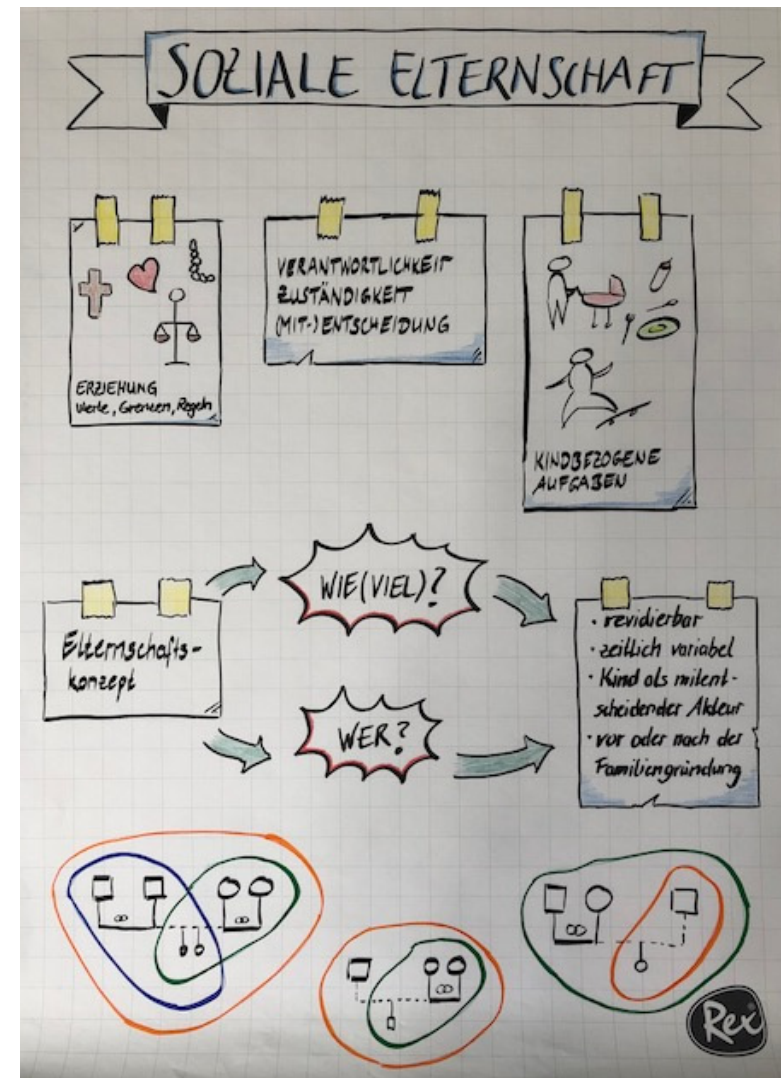 SOZIALE ELTERNSCHAFT
ERZIEHUNG
Werte, Grenzen, Regeln
VERANTWORTLICHKEIT
ZUSTÄNDIGKEIT
(MIT-)ENTSCHEIDUNG
KINDBEZOGENE
AUFGABEN
Elternschafts-
konzept
WIE(VIEL)?
WER?
· revidierbar
· zeitlich variabel
· Kind als mitent-
scheidender Akteur
· vor oder nach der
Familiengründung
Rex